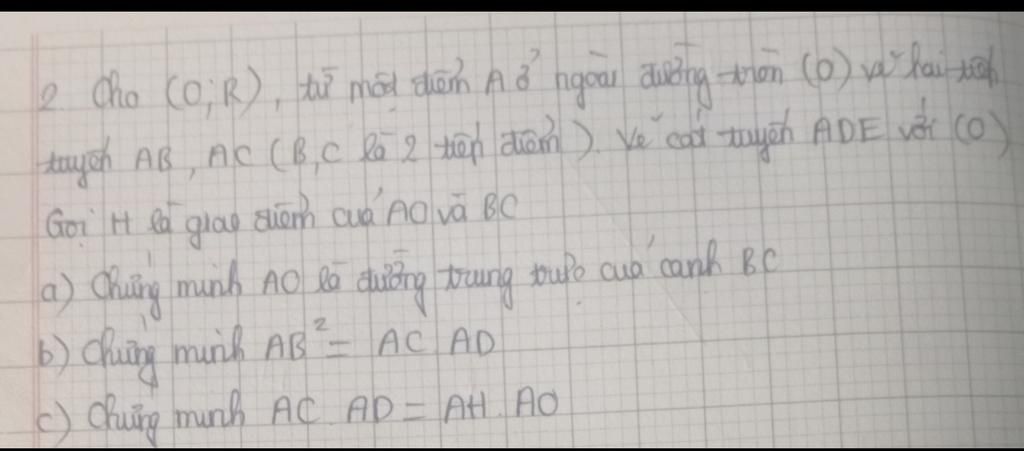 2. Cho (O;R), từ một điểm A ở ngoài đường tròn (O) vẽ hai tiếp
tuyến AB, AC (B,C là 2 tiếp điểm). Vẽ cát tuyến ADE với (O)
Gọi H là giao điểm của AO và BC
a) Chứng minh AO là đường trung trực của cạnh BC
b) Chứng minh AB² = AC. AD
c) Chứng minh AC. AD = AH. AO